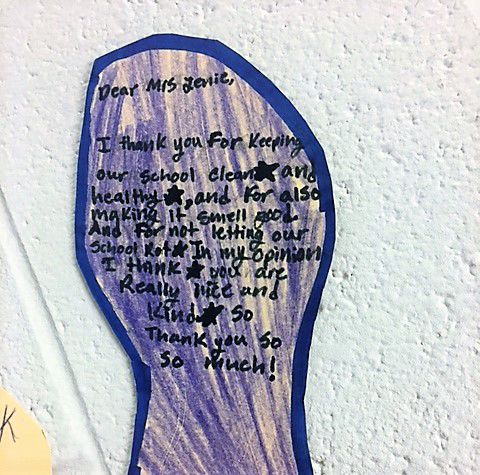 Dear Mrs Jenie,
I thank you For Keeping
our school clean★ and
healthy★, and For also
making it smell good
And For not letting our
School Rot★ In my opinion
I think ★ you are
Really nice and
Kind★ so
Thank you so
so much!
K